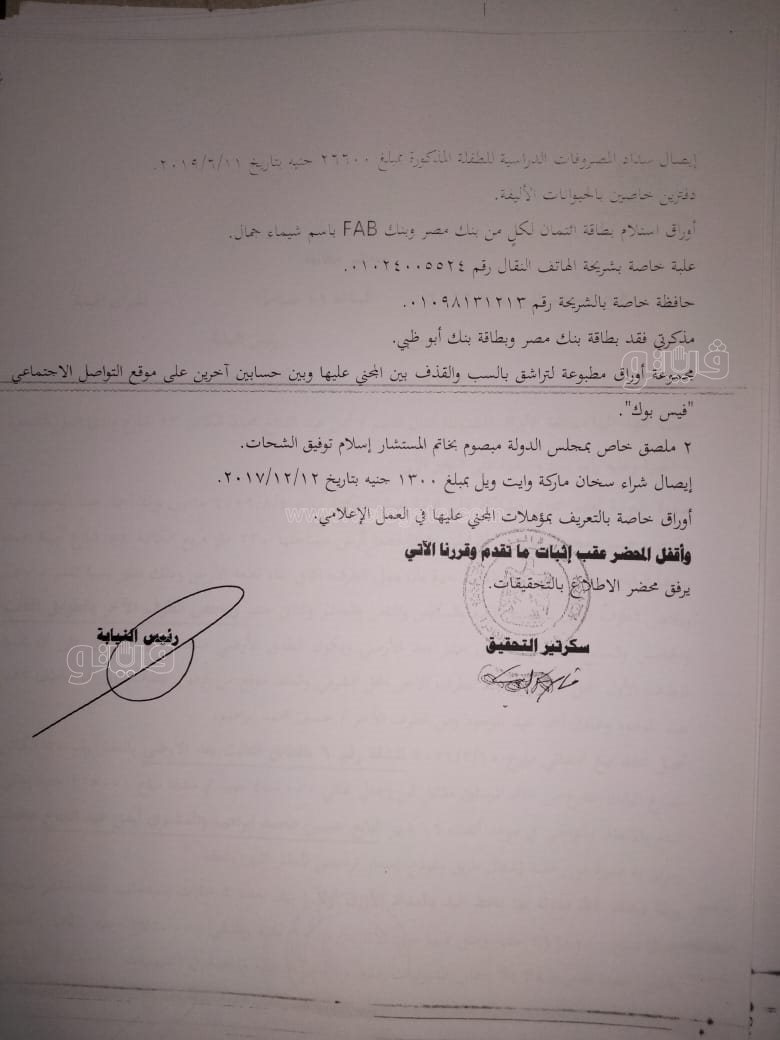 إيصال سداد المصروفات الدراسية للطفلة المذكورة بمبلغ ٢٦٦٠٠ جنيه بتاريخ ٢٠١٩/٦/١١.
دفترين خاصين بالحيوانات الأليفة.
أوراق استلام بطاقة ائتمان لكلٍ من بنك مصر وبنك FAB باسم شيماء جمال.
علبة خاصة بشريحة الهاتف النقال رقم ٠١٠٢٤٠٠٥٥٢٤.
حافظة خاصة بالشريحة رقم ٠١٠٩٨١٣١٢١٣.
مذكرتي فقد بطاقة بنك مصر وبطاقة بنك أبو ظبي.
فيتو
مجموعة أوراق مطبوعة لتراشق بالسب والقذف بين المجني عليها وبين حسابين آخرين على موقع التواصل الاجتماعي
"فيس بوك".
٢ ملصق خاص بمجلس الدولة مبصوم بخاتم المستشار إسلام توفيق الشحات.
إيصال شراء سخان ماركة وايت ويل بمبلغ ١٣٠٠ جنيه بتاريخ ٢٠١٧/١٢/١٢.
أوراق خاصة بالتعريف بمؤهلات المجني عليها في العمل الإعلامي.
وأقفل المحضر عقب إثبات ما تقدم وقررنا الآتي
يرفق محضر الاطلاع بالتحقيقات.
سكرتير التحقيق
رئيس النيابة
فيتو